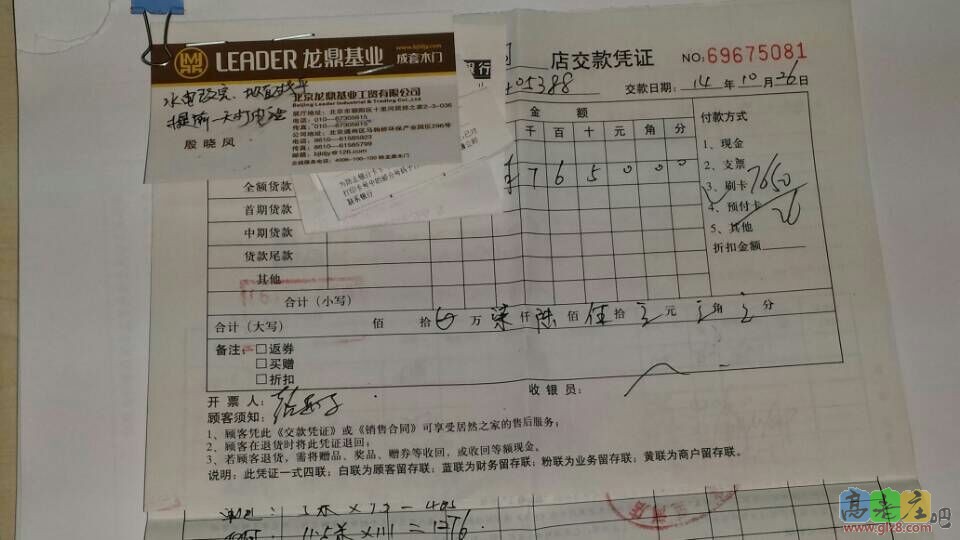 LEADER 龙鼎基业 www.bjldjy.com 成套木门
水电改完、地面找平
提前一天打电话
殷晓凤
北京龙鼎基业工贸有限公司
Beijing Leader Industrial & Trading Co.,Ltd
展厅地址：北京市朝阳区十里河
电话：010-67305615
传真：010-67305615
公司地址：北京市通州区马驹桥环保产业园区296号
电话：8610-61585923
传真：8610-61585799
店交款凭证 NO:69675081
05388 交款日期：14 年 10 月 26 日
金 额
千 百 十 元 角 分
付款方式
1、现金
2、支票
3、刷卡 7650
4、预付卡
5、其他
折扣金额
全额货款 ¥ 7 6 5 0 0 0
首期货款
中期货款
货款尾款
其他
合计（小写）
合计（大写） 佰 拾 万 柒 仟 陆 佰 伍 拾 元 角 分
备注： 返券
买赠
折扣
开 票 人： 收 银 员：
顾客须知：
1、顾客凭此《交款凭证》或《销售合同》可享受居然之家的售后服务；
2、顾客在退货时将此凭证退回；
3、若顾客退货，需将赠品、奖品、赠券等收回，或收回等额现金。
说明：此凭证一式四联；白联为顾客留存联；蓝联为财务留存联；粉联为业务留存联；黄联为商户留存联。
11.5米×111=1276.
高老庄吧
www.glz8.com